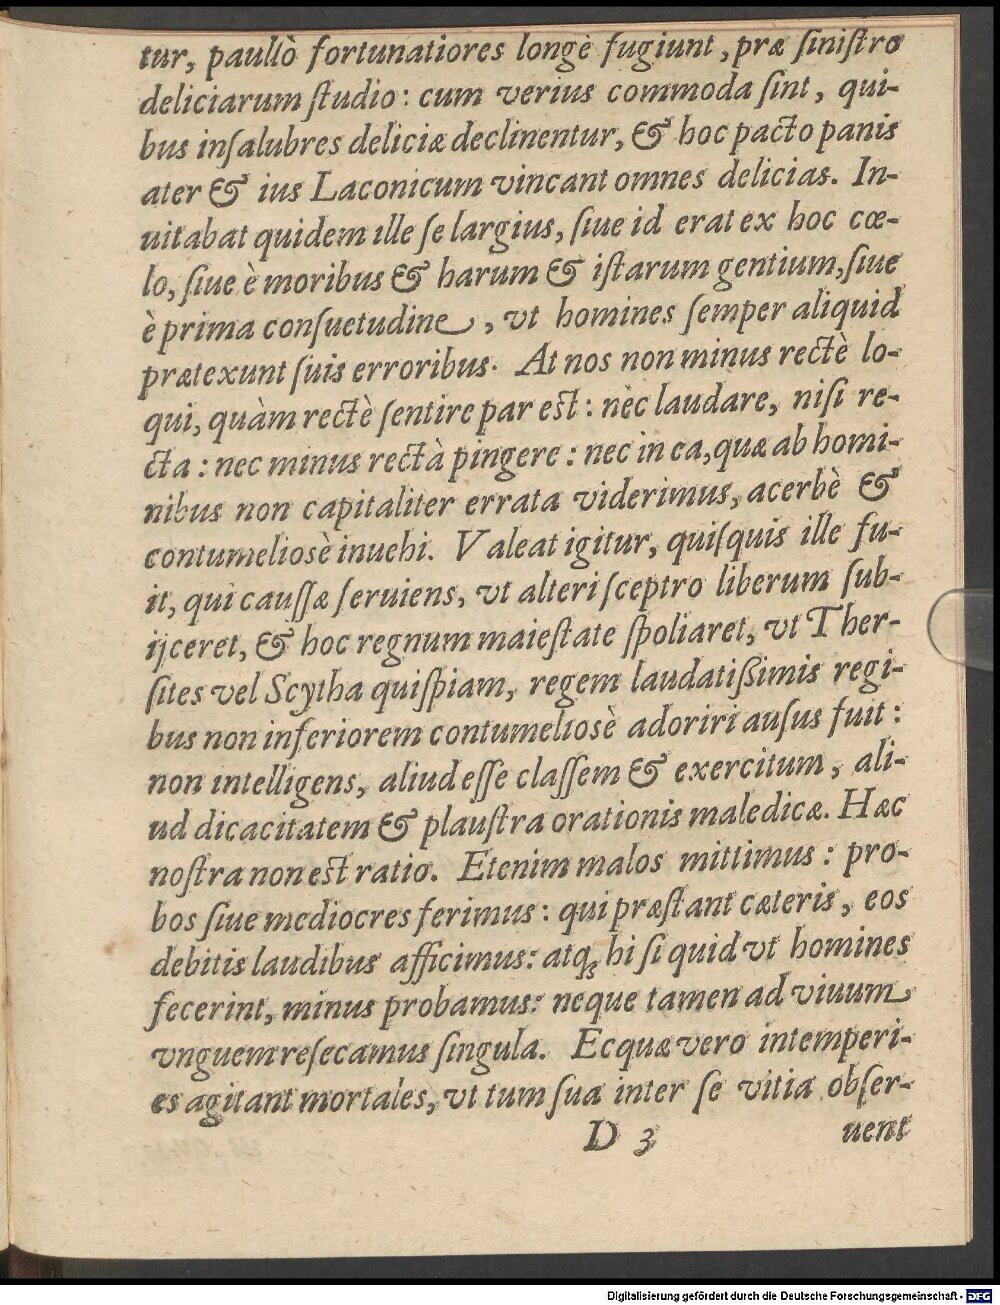 tur, paullò fortunatiores longè fugiunt, præ ſiniſtro
deliciarum ſtudio: cum verius commoda ſint, qui-
bus inſalubres deliciæ declinentur, & hoc pacto panis
ater & ius Laconicum vincant omnes delicias. In-
uitabat quidem ille ſe largius, ſiue id erat ex hoc cœ-
lo, ſiue è moribus & harum & iſtarum gentium, ſiue
è prima conſuetudine, vt homines ſemper aliquid
prætexunt ſuis erroribus. At nos non minus rectè lo-
qui, quàm rectè ſentire par est: nèc laudare, niſi re-
cta: nec minus rectà pingere: nec in ea, quæ ab homi-
nibus non capitaliter errata viderimus, acerbè &
contumeliosè inuehi. Valeat igitur, quiſquis ille fu-
it, qui cauſſæ ſeruiens, vt alteri ſceptro liberum ſub-
ijceret, & hoc regnum maieſtate ſpoliaret, vt Ther-
ſites vel Scytha quiſpiam, regem laudatißimis regi-
bus non inferiorem contumeliosè adoriri auſus fuit:
non intelligens, aliud eſſe claſſem & exercitum, ali-
ud dicacitatem & plauſtra orationis maledicæ. Hæc
noſtra non est ratio. Etenim malos mittimus: pro-
bos ſiue mediocres ferimus: qui præſtant cæteris, eos
debitis laudibus afficimus: atq; hi ſi quid vt homines
fecerint, minus probamus: neque tamen ad viuum
vnguem reſecamus ſingula. Ecquæ vero intemperi-
es agitant mortales, vt tum ſua inter ſe vitia obſer-
D 3 uent
Digitalisierung gefördert durch die Deutsche Forschungsgemeinschaft - DFG